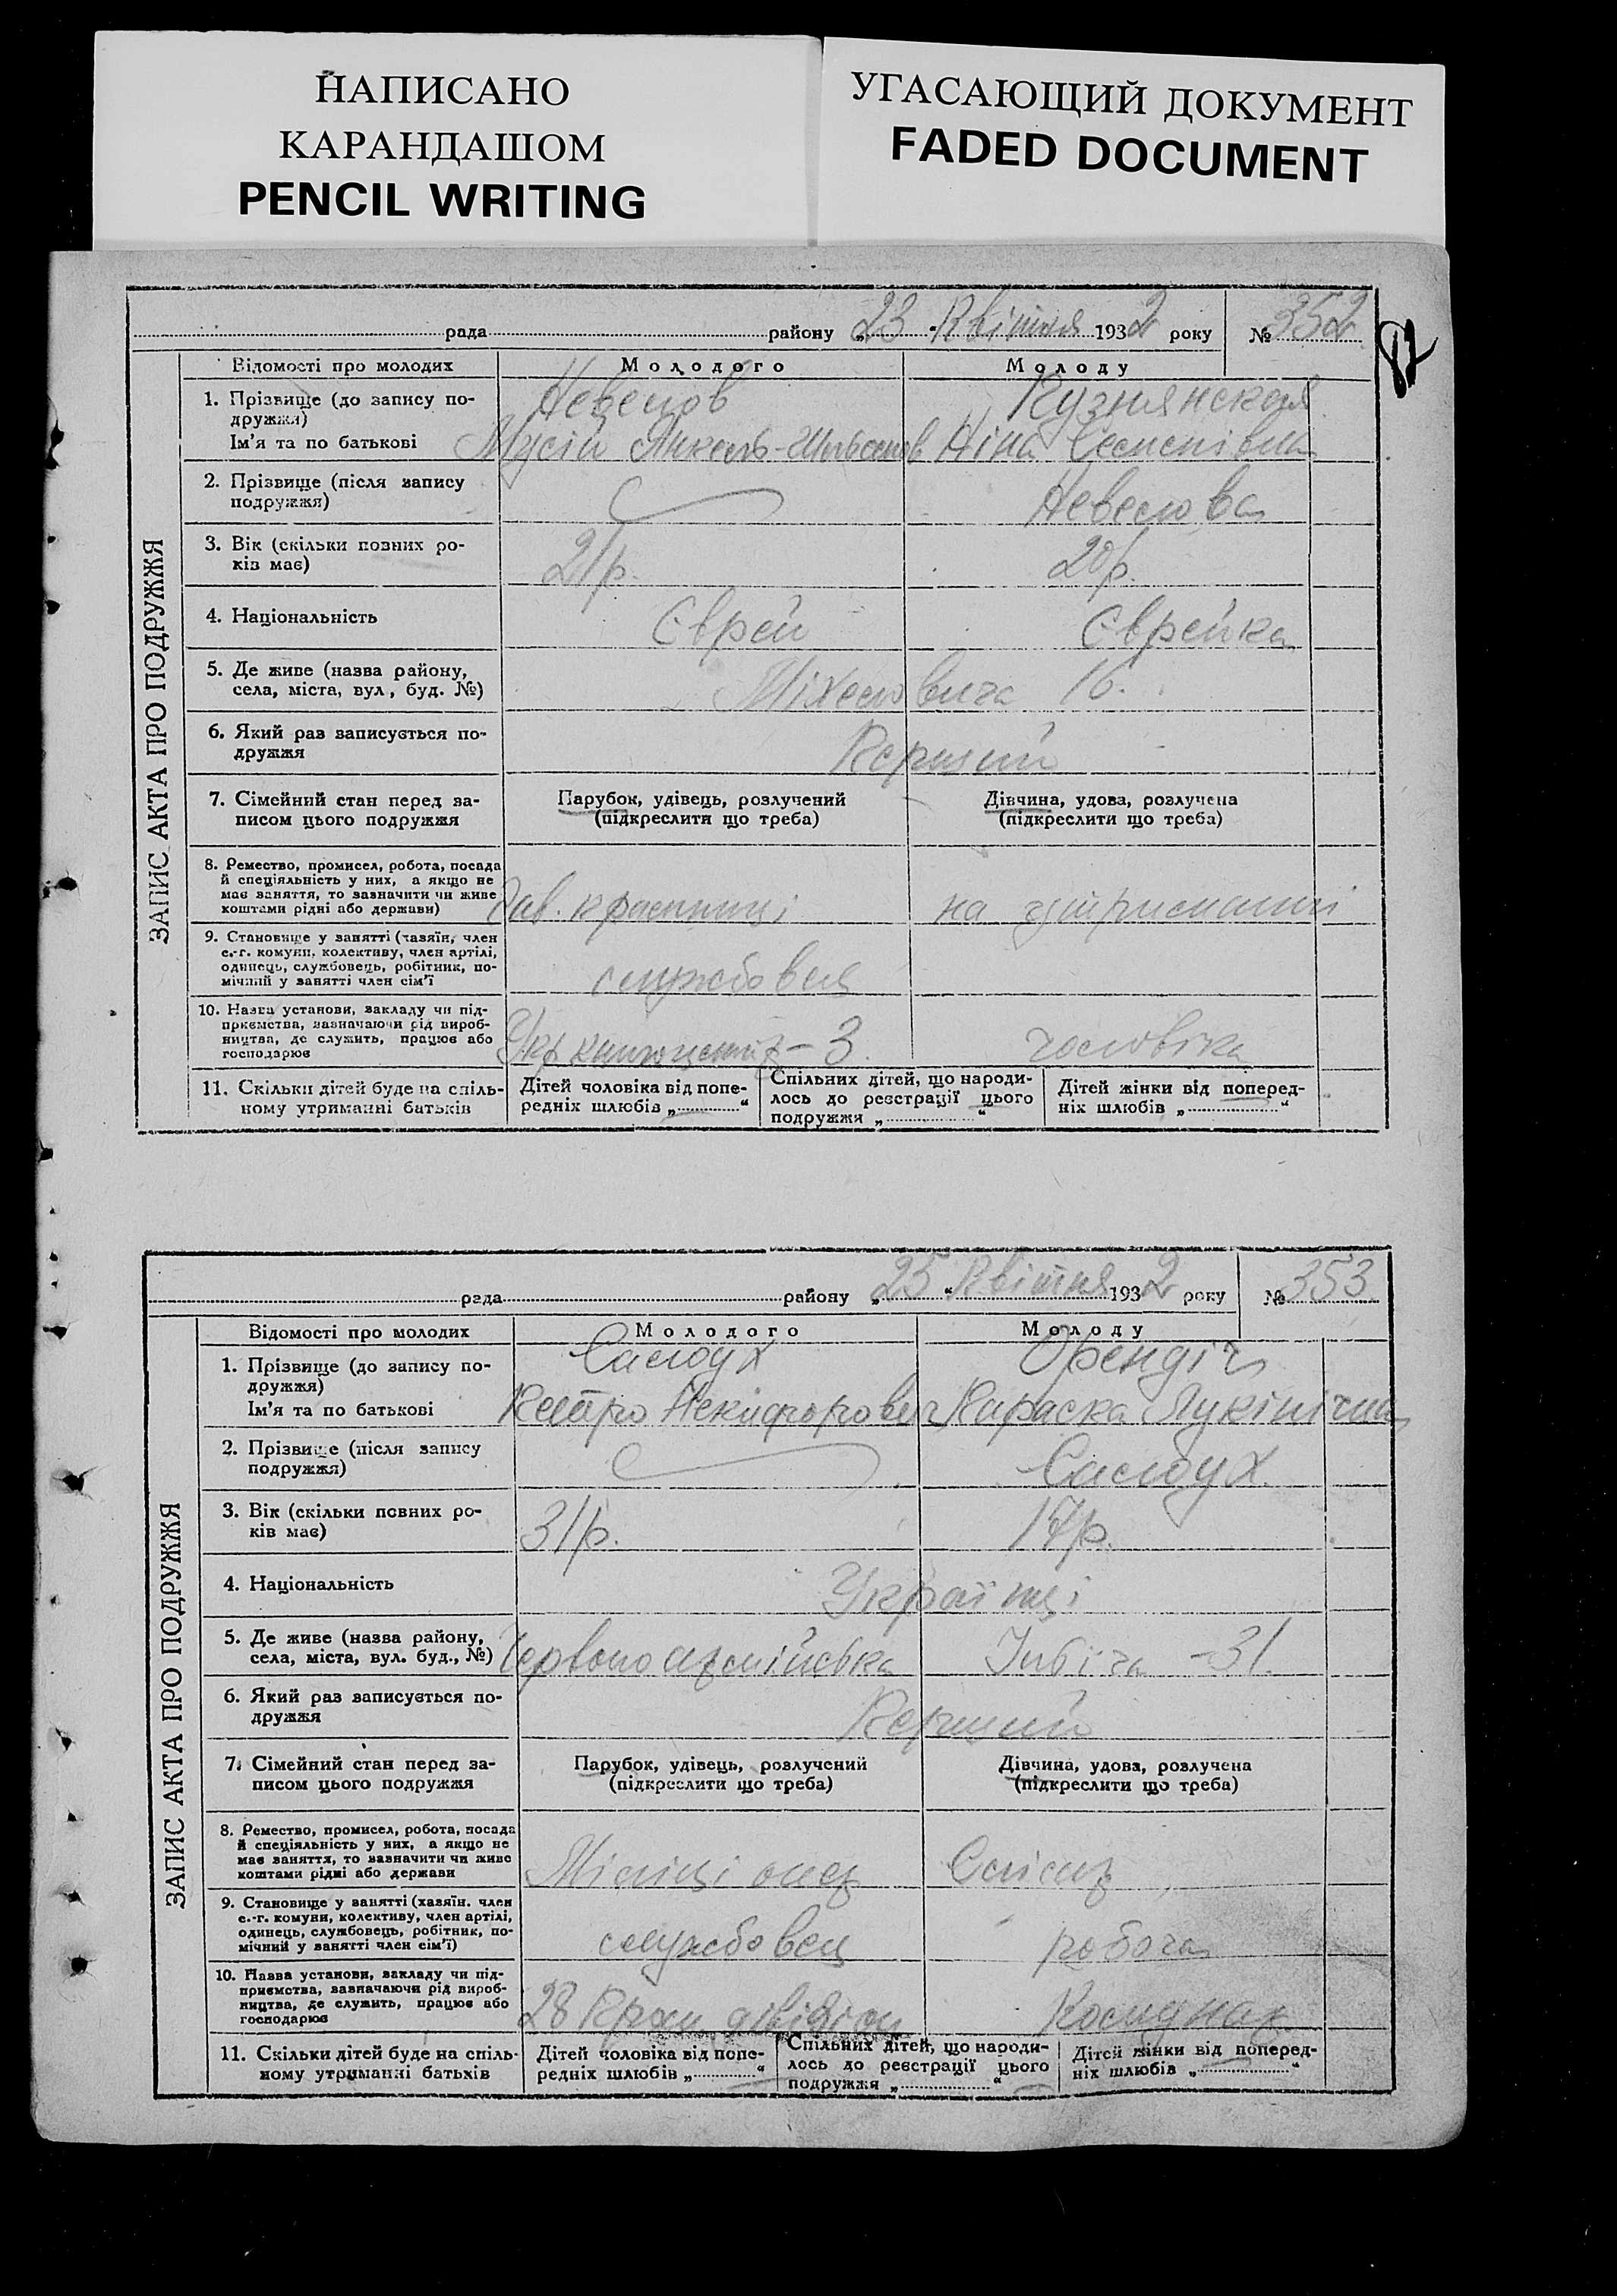 НАПИСАНО
КАРАНДАШОМ
PENCIL WRITING
УГАСАЮЩИЙ ДОКУМЕНТ
FADED DOCUMENT
рада району „23“ Квітня 1932 року № 352
82
ЗАПИС АКТА ПРО ПОДРУЖЖЯ
Відомості про молодих Молодого Молоду
1. Прізвище (до запису по-
дружжя)
Ім'я та по батькові
Мусій
Ніна
2. Прізвище (після запису
подружжя)
Невелова
3. Вік (скільки повних ро-
ків має)
21 р. 20 р.
4. Національність Єврей Єврейка
5. Де живе (назва району,
села, міста, вул, буд. №)
Міхеловича 16.
6. Який раз записується по-
дружжя
Перший
7. Сімейний стан перед за-
писом цього подружжя
Парубок, удівець, розлучений
(підкреслити що треба)
Дівчина, удова, розлучена
(підкреслити що треба)
8. Ремество, промисел, робота, посада
й спеціяльність у них, а якщо не
має заняття, то зазначити чи живе
коштами рідні або держави)
Зав. крамниці на утриманні
9. Становище у занятті (хазяїн, член
с.-г. комуни, колективу, член артілі,
одинець, службовець, робітник, по-
мічний у занятті член сім'ї
службовец
10. Назва установи, закладу чи під-
приємства, зазначаючи рід вироб-
ництва, де служить, працює або
господарює
чоловіка
11. Скільки дітей буде на спіль-
ному утриманні батьків
Дітей чоловіка від попе-
редніх шлюбів „ “
Спільних дітей, що народи-
лось до реєстрації цього
подружжя „ “
Дітей жінки від поперед-
ніх шлюбів „ “
рада району „25“ Квітня 1932 року № 353
ЗАПИС АКТА ПРО ПОДРУЖЖЯ
Відомості про молодих Молодого Молоду
1. Прізвище (до запису по-
дружжя)
Ім'я та по батькові
Саслоух
Петро Некифорович Параска
2. Прізвище (після запису
подружжя)
Саслоух
3. Вік (скільки повних ро-
ків має)
31 р. 17 р.
4. Національність Українці
5. Де живе (назва району,
села, міста, вул. буд., №)
31.
6. Який раз записується по-
дружжя
Перший
7. Сімейний стан перед за-
писом цього подружжя
Парубок, удівець, розлучений
(підкреслити що треба)
Дівчина, удова, розлучена
(підкреслити що треба)
8. Ремество, промисел, робота, посада
й спеціяльність у них, а якщо не
має заняття, то зазначити чи живе
коштами рідні або держави
Міліціонец
9. Становище у занятті (хазяїн. член
с.-г. комуни, колективу, член артілі,
одинець, службовець, робітник, по-
мічний у занятті член сім'ї)
службовец робоча
10. Назва установи, закладу чи під-
приємства, зазначаючи рід вироб-
ництва, де служить, працює або
господарює
28 дівізіон
11. Скільки дітей буде на спіль-
ному утриманні батьків
Дітей чоловіка від попе-
редніх шлюбів „ “
Спільних дітей, що народи-
лось до реєстрації цього
подружжя „ “
Дітей жінки від поперед-
ніх шлюбів „ “